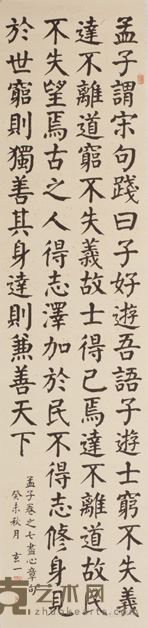 孟子謂宋句踐曰子好遊吾語子遊士窮不失義
達不離道窮不失義故士得己焉達不離道故民
不失望焉古之人得志澤加於民不得志修身見
於世窮則獨善其身達則兼善天下
孟子卷之七盡心章句
癸未秋月 玄一
艺术网